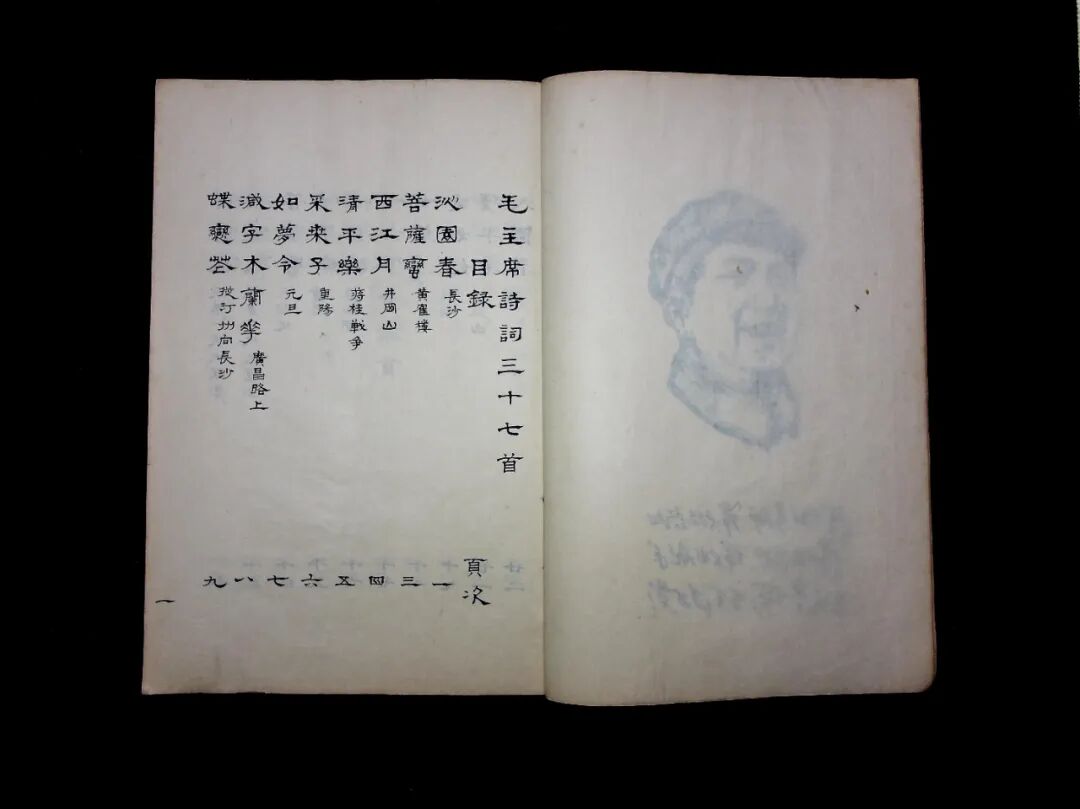 毛主席詩詞三十七首
目録 頁次
沁園春 長沙 一
菩薩蠻 黄崔樓 三
西江月 井岡山 四
清平樂 蒋桂戰争 五
采桒子 重陽 六
如夢令 元旦 七
減字木蘭花 廣昌路上 八
蝶戀花 從汀州向長沙 九
一